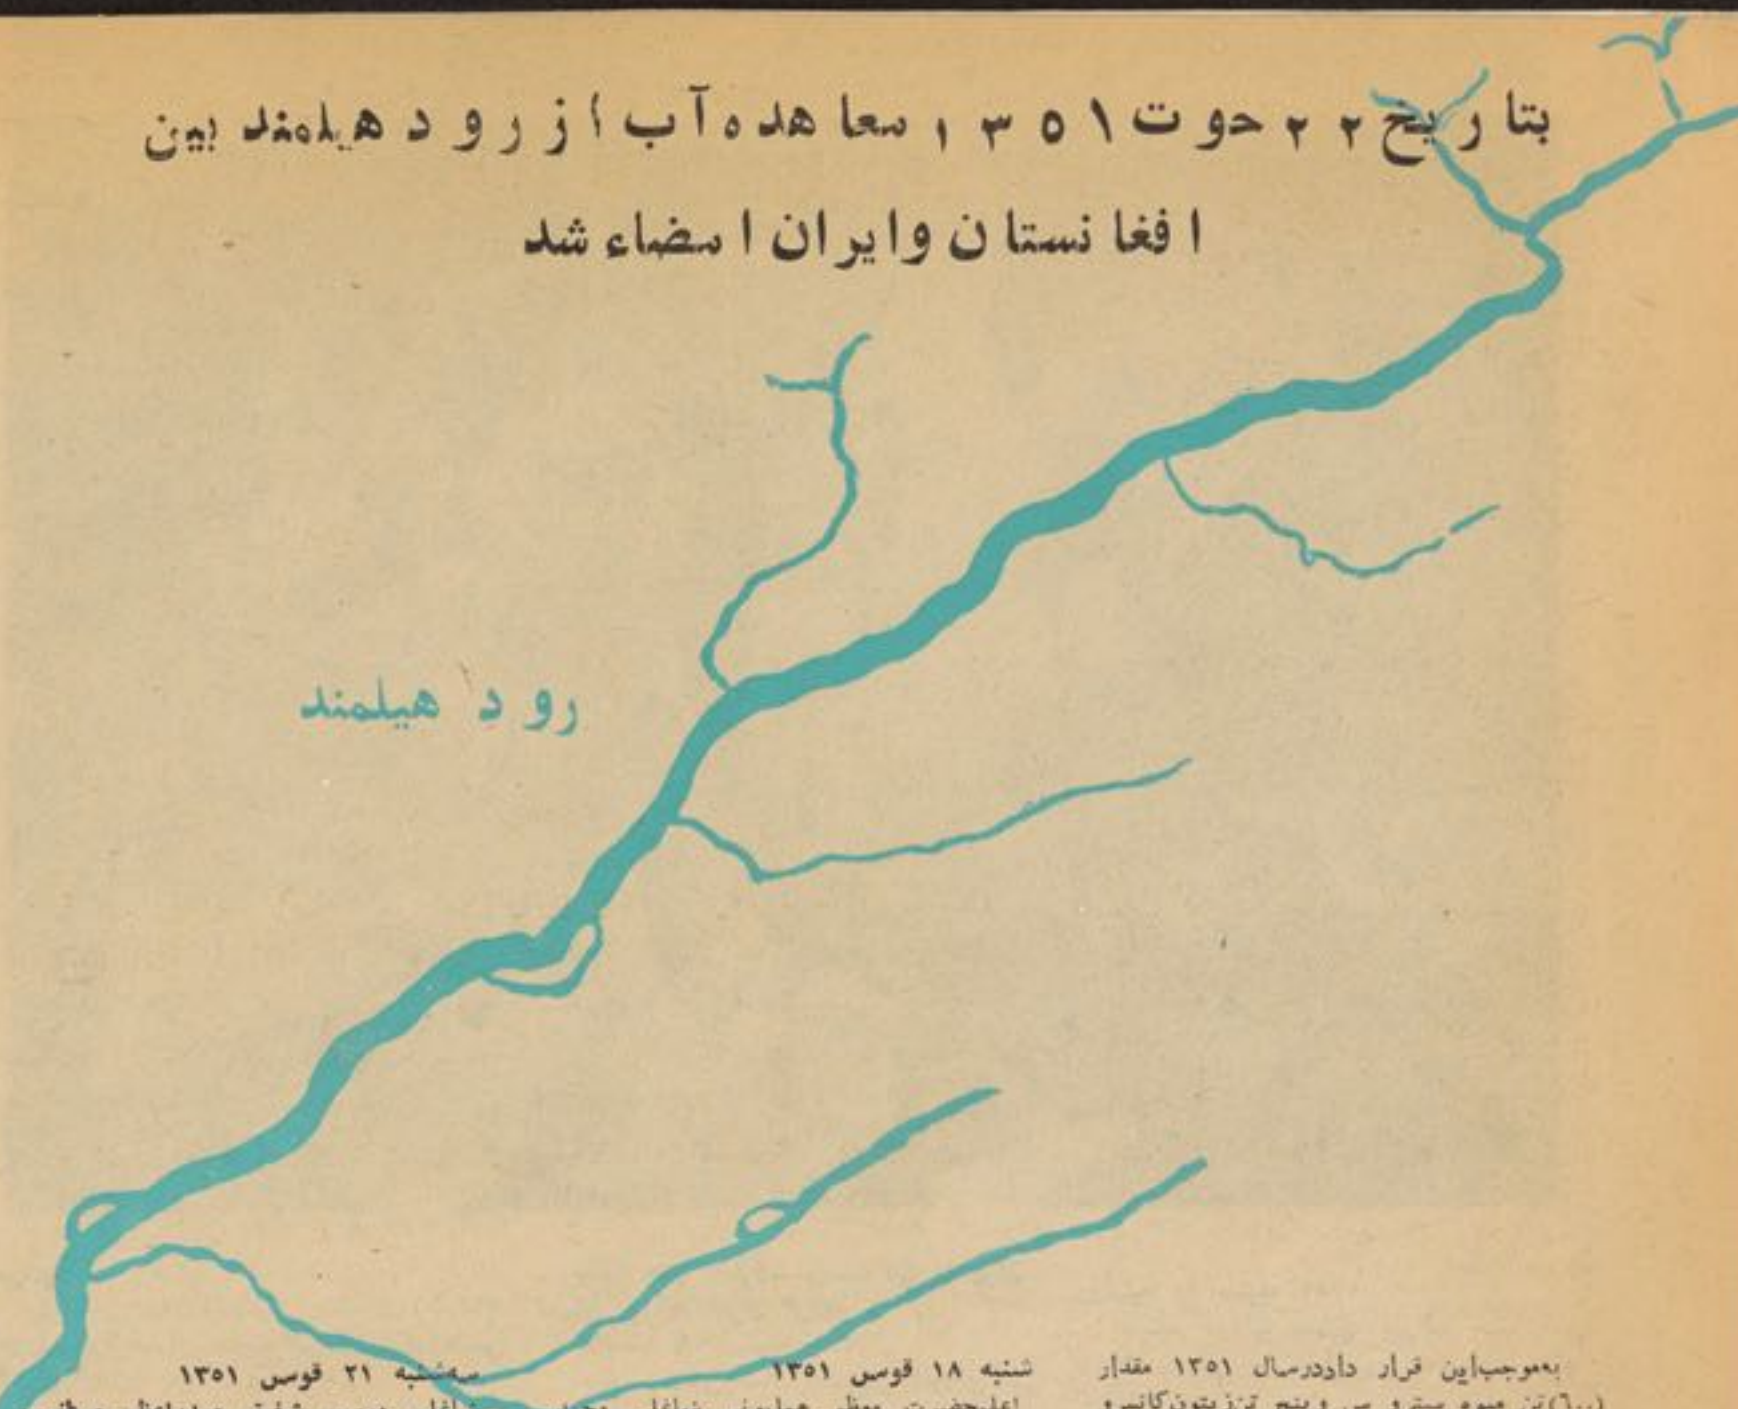 بتاریخ ۲۲ حوت ۱۳۵۱ معاهده آب از رود هیلمند بین
افغانستان و ایران امضاء شد
رود هیلمند
به‌موجب این قرار داد در سال ۱۳۵۱ مقدار
شنبه ۱۸ قوس ۱۳۵۱
سه‌شنبه ۲۱ قوس ۱۳۵۱